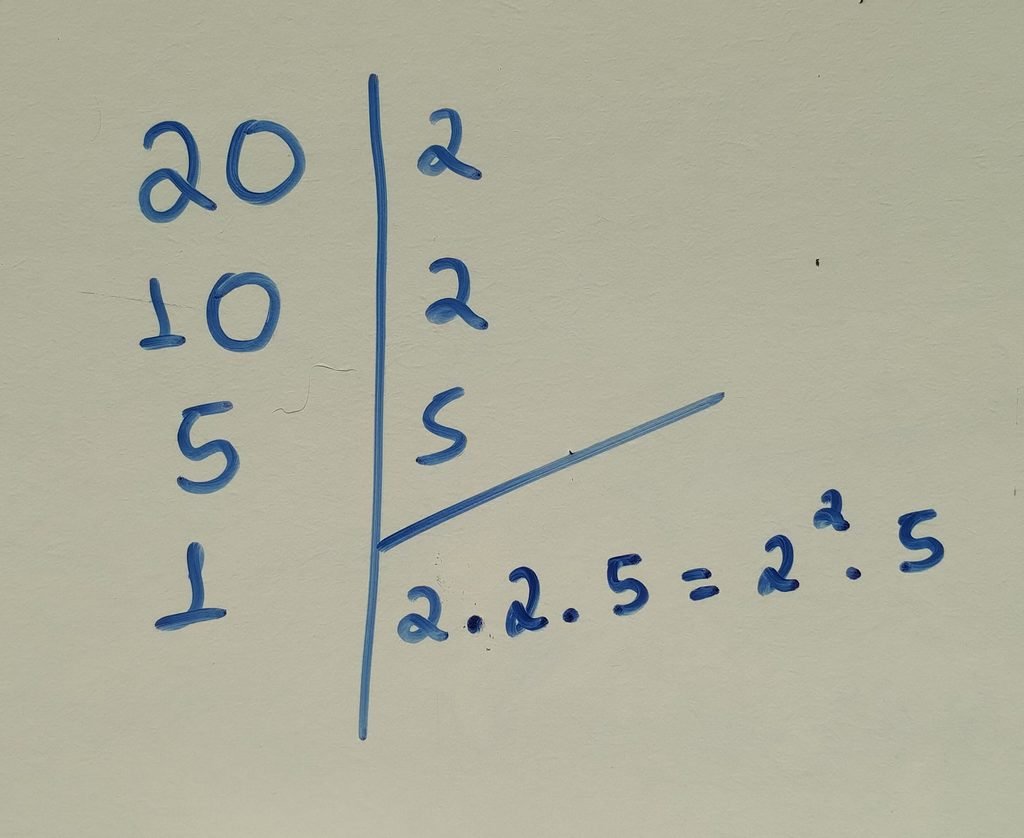 20 | 2
10 | 2
5 | 5
1 | 2 . 2 . 5 = 2² . 5